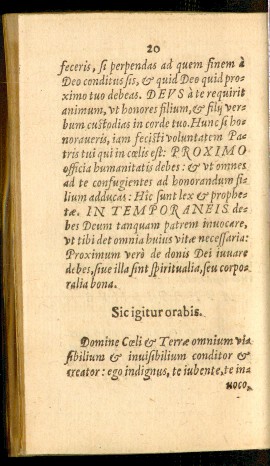 20
feceris, si perpendas ad quem finem à
Deo conditus sis, & quid Deo quid pro-
ximo tuo debeas. DEVS à te requirit
animum, vt honores filium, & filij ver-
bum custodias in corde tuo. Hunc si ho-
noraueris, iam fecisti voluntatem Pa-
tris tui qui in cœlis est: PROXIMO
officia humanitatis debes: & vt omnes
ad te confugientes ad honorandum fi-
lium adducas: Hic sunt lex & prophe-
tæ. IN TEMPORANEIS de-
bes Deum tanquam patrem inuocare,
vt tibi det omnia huius vitæ necessaria:
Proximum verò de donis Dei iuuare
debes, siue illa sint spiritualia, seu corpo-
ralia bona.
Sic igitur orabis.
Domine Cœli & Terræ omnium vi-
sibilium & inuisibilium conditor &
creator: ego indignus, te iubente, te in-
uoco,